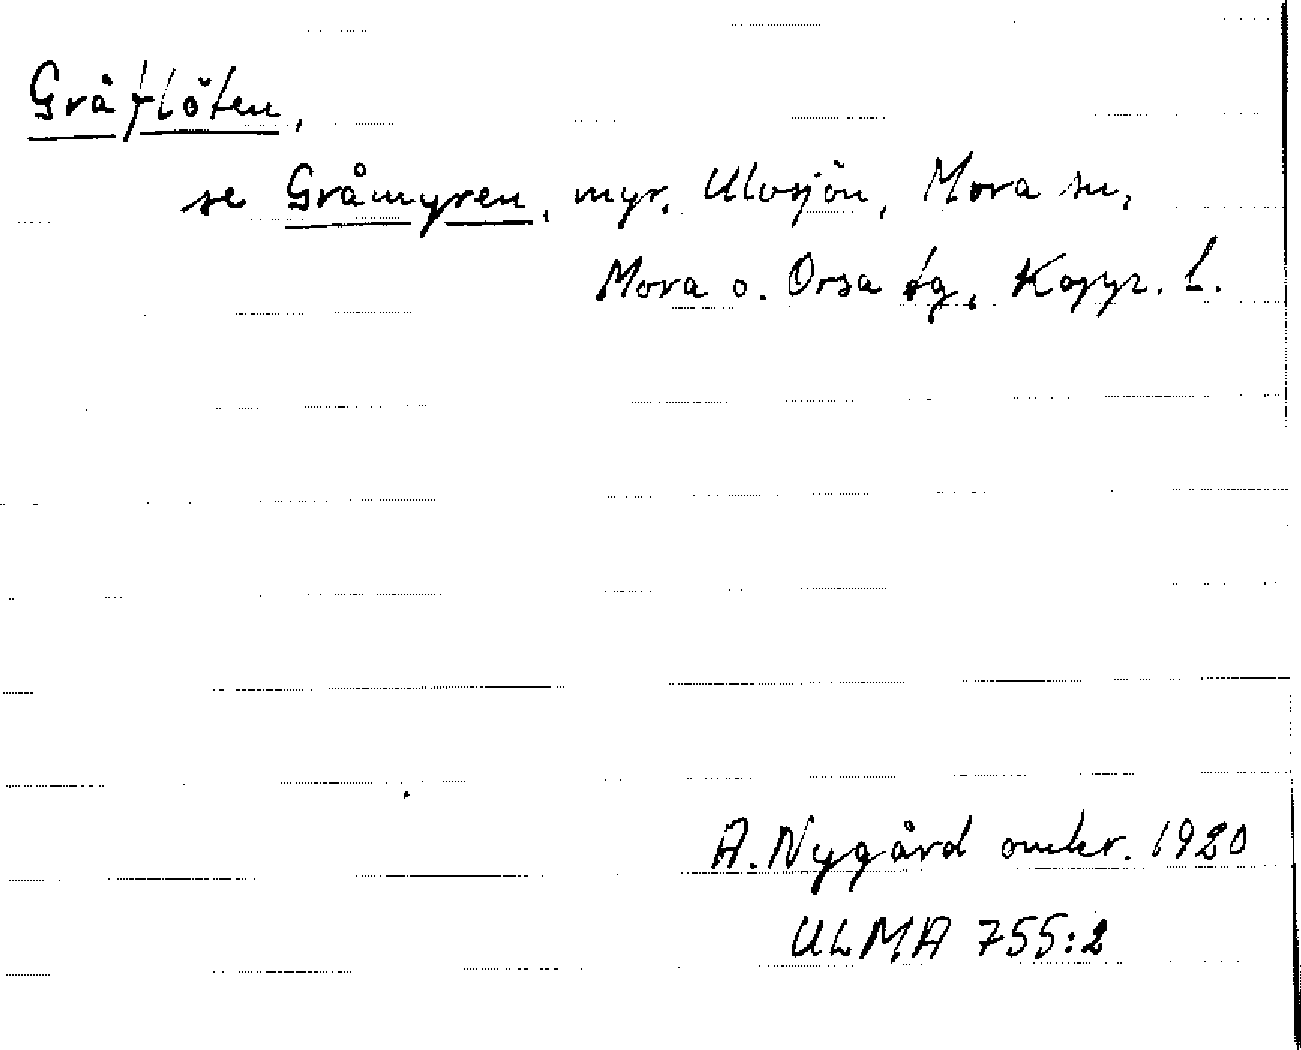 Gråflöten,
se Gråmyren, myr, Ulvsjön, Mora sn,
Mora o. Orsa tg, Kopp. L.
A. Nygård omkr. 1920
ULMA 755:2